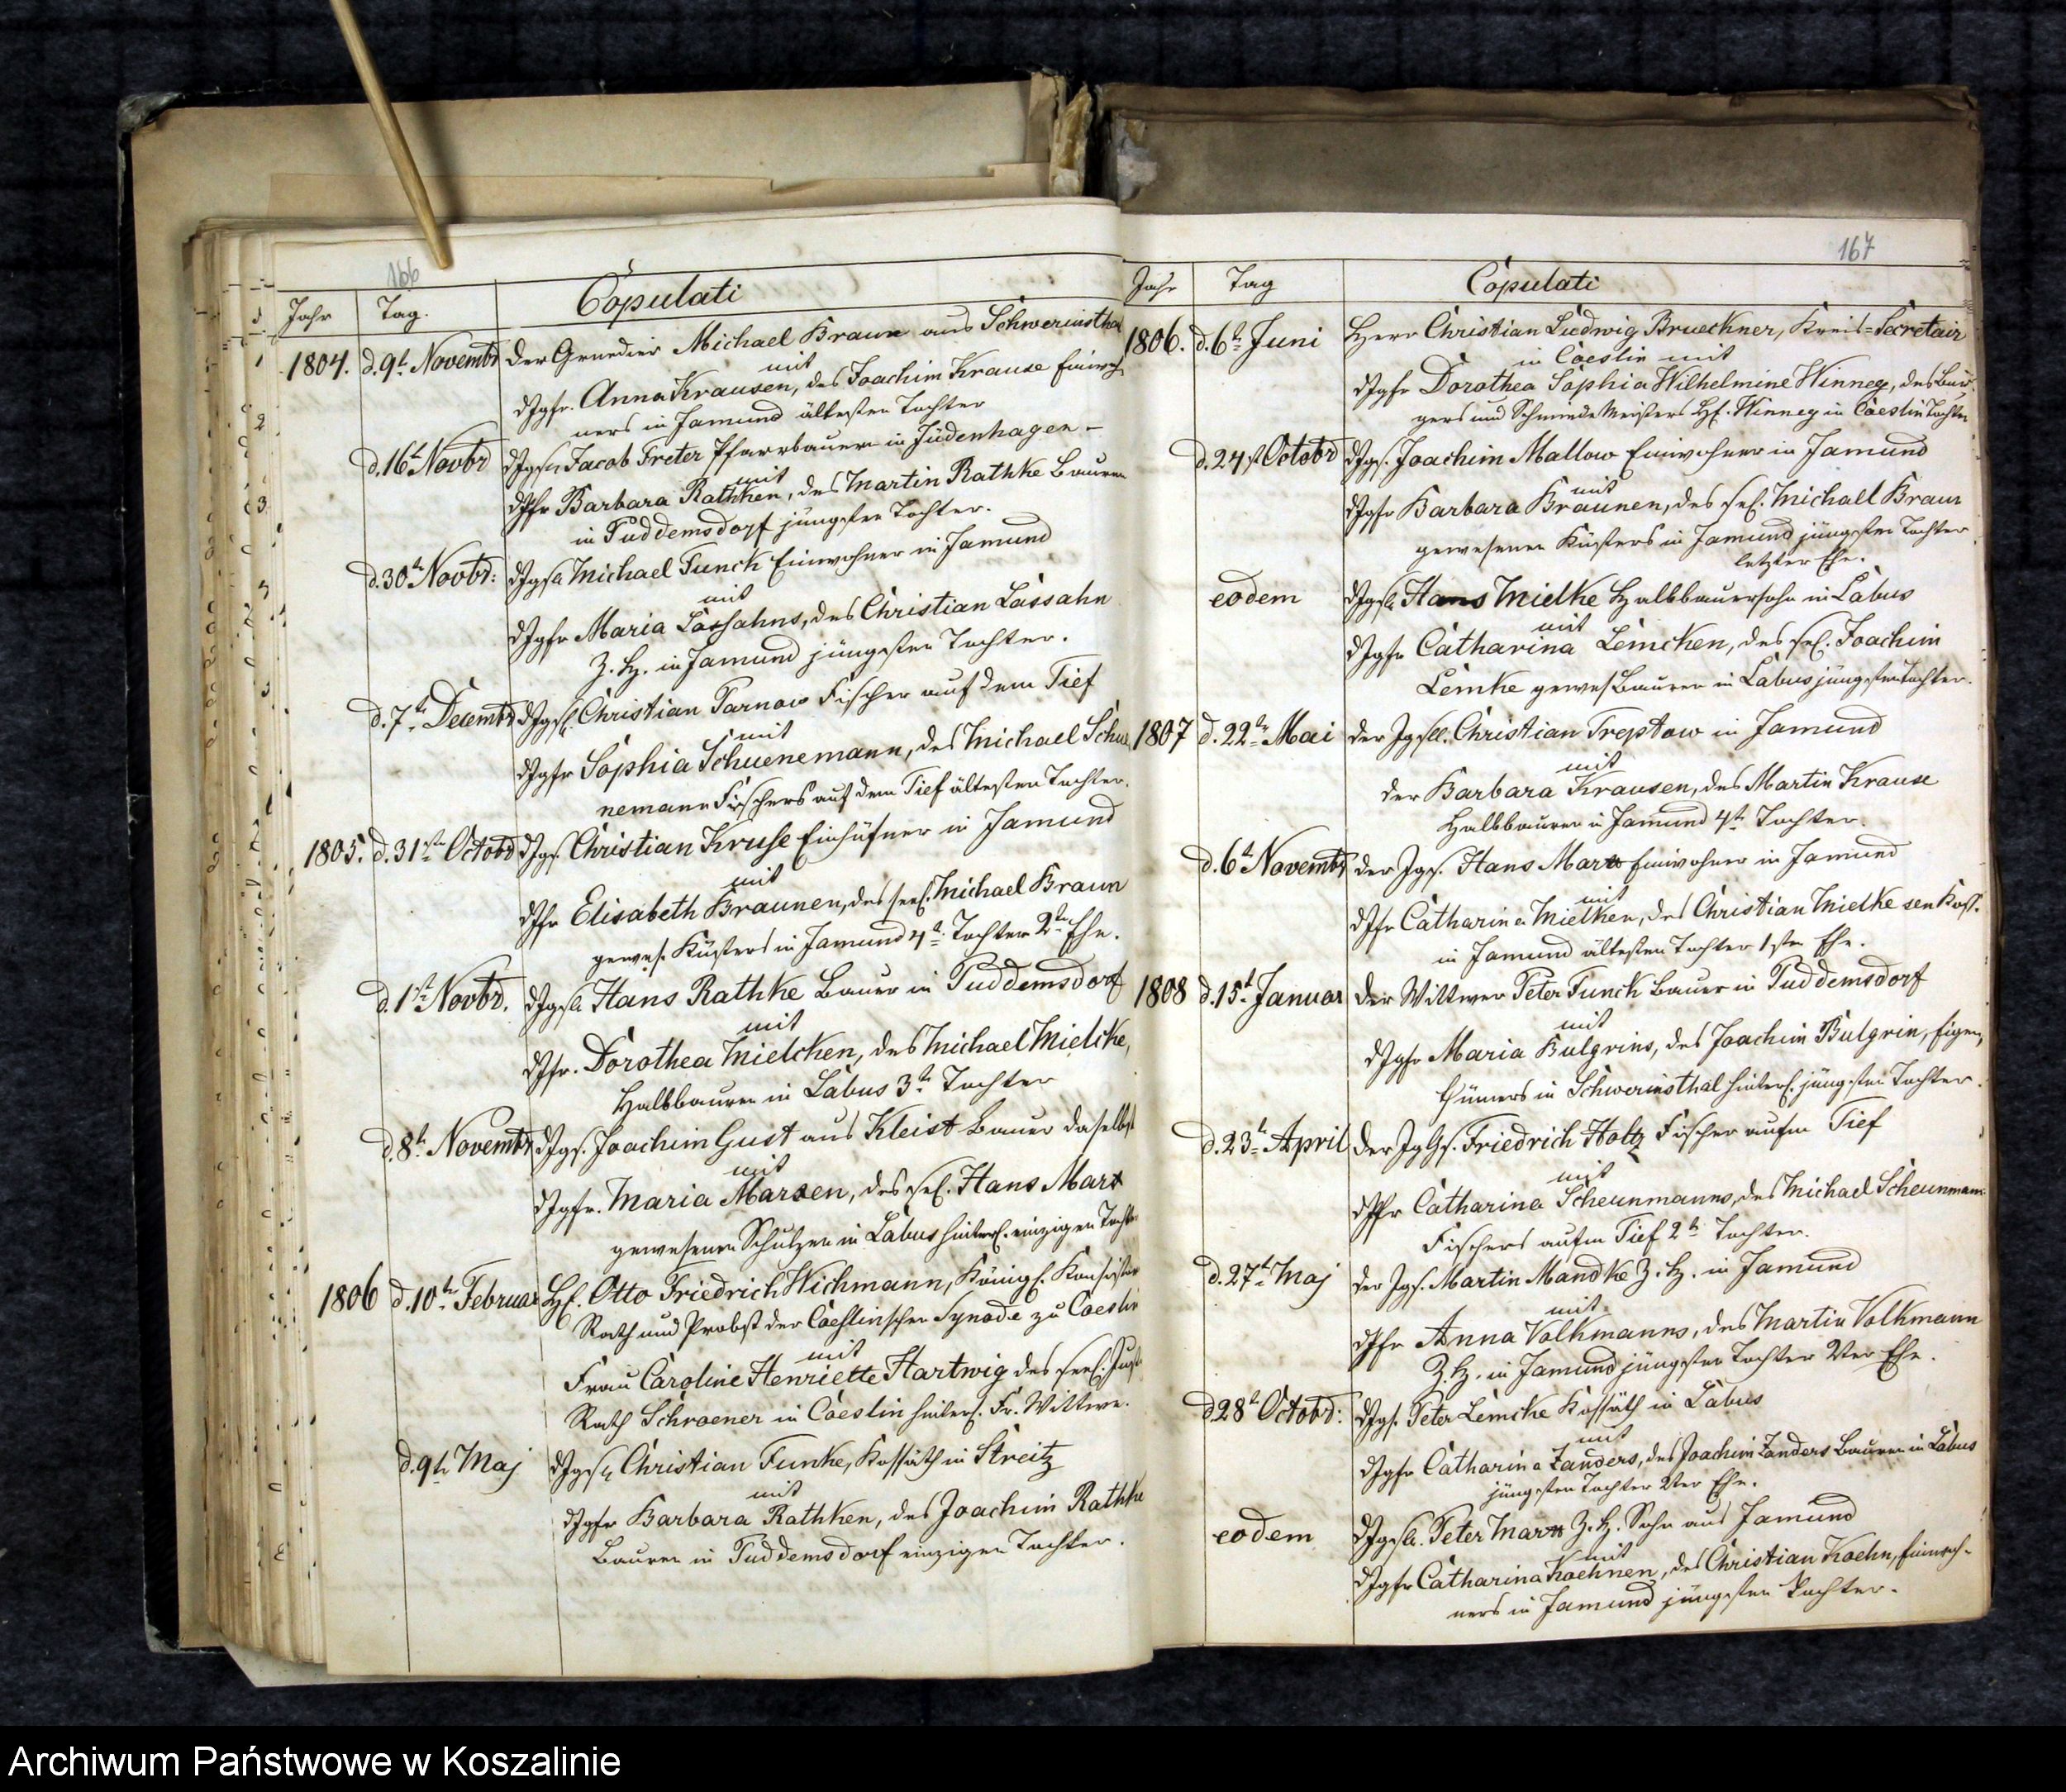 166
Jahr Tag. Copulati
1804. d. 9t Novembr Der Grenedier Michael Braun aus Schwerinsthal
mit
d Jgfr. Anna Krausen, des Joachim Krause Einwoh
ners in Jamund ältesten Tochter
d. 16t Novbr d Jgsll Jacob Treter Pfarrbauer in Jüdenhagen –
mit
d Jfr Barbara Rathken, des Martin Rathke Bauren
in Puddemsdorf jüngsten Tochter.
d. 30t Novbr: d Jgsll Michael Funck Einwohner in Jamund
mit
d Jgfr Maria Lassahns, des Christian Lassahn
Z. H. in Jamund jüngsten Tochter.
d. 7t Decembr d Jgsll Christian Parnow Fischer auf dem Tief
mit
d Jgfr Sophia Schuenemann, des Michael Schue
nemann Fischers auf dem Tief ältesten Tochter.
1805. d. 31st Octobr d Jgs. Christian Kruse Einhüfner in Jamund
mit
d Jfr Elisabeth Braunen, des seel. Michael Braun
gewes. Küsters in Jamund 4t Tochter 2ter Ehe.
d. 1st Novbr. d Jgsll Hans Rathke Bauer in Puddemsdorf
mit
d Jfr. Dorothea Mielcken, des Michael Mielcke,
Halbbauren in Labus 3t Tochter
d. 8t Novembr d Jgs. Joachim Gust aus Kleist Bauer daselbst
mit
d Jgfr. Maria Marxen, des sel. Hans Marx
gewesenen Schulzen in Labus hinterl. einzigen Tochter
1806 d. 10t Februar H. Otto Friedrich Wichmann, Königl. Konsistor
Rath und Probst der Coeslinschen Synode zu Coeslin
mit
Frau Caroline Henriette Hartwig des seel. Justz
Rath Schroener in Coeslin hinterl. Fr. Wittwe.
d. 9t Maj d Jgsll Christian Funke, Kossäth in Streitz
mit
d Jgfr Barbara Rathken, des Joachim Rathke
Bauren in Puddemsdorf einzigen Tochter.
167
Jahr Tag Copulati
1806. d. 6t Juni Herr Christian Ludwig Brueckner, Kreis=Secretair
in Coeslin mit
d Jgfr Dorothea Sophia Wilhelmine Winneg, des Bür
gers und Schmiede Meisters H. Winneg in Coeslin Tochter
d. 24st Octobr d Jgs. Joachim Mallow Einwohner in Jamund
mit
d Jgfr Barbara Braunen, des sel. Michall Braun
gewesenen Küsters in Jamund jüngsten Tochter
letzter Ehe.
eodem d Jgsll Hans Mielke Halbbauersohn in Labus
mit
d Jgfr Catharina Lemcken, des sel. Joachim
Lemke gewes Bauren in Labus jüngsten Tochter.
1807 d. 22t Mai der Jgsll. Christian Treptow in Jamund
mit
der Barbara Krausen, des Martin Krause
Halbbauren in Jamund 4t Tochter.
d. 6t Novembr der Jgs. Hans Marx Einwohner in Jamund
mit
d Jfr Catharina Mielken, des Christian Mielke sen Koss.
in Jamund ältesten Tochter 1ster Ehe.
1808 d. 15t Januar Der Wittwer Peter Funck Bauer in Puddemsdorf
mit
d Jgfr Maria Bulgrins, des Joachim Bulgrin, Eigen
thümers in Schwerinsthal hinterl. jüngsten Tochter.
d. 23t April der JgGs. Friedrich Holtz Fischer aufm Tief
mit
d Jfr Catharina Scheunmanns, des Michael Scheunmann
Fischers aufm Tief 2t Tochter.
d. 27t Maj der Jgs. Martin Mandke Z. H. in Jamund
mit
d Jfr Anna Volkmanns, des Martin Volkmann
Z. H. in Jamund jüngsten Tochter 2ter Ehe.
d 28t Octobr: d Jgs. Peter Lemcke Kossäth in Labus
mit
d Jgfr Catharina Zanders, des Joachim Zanders Bauren in Labus
jüngsten Tochter 2ter Ehe.
eodem d Jgsll. Peter Marx Z. H. Sohn aus Jamund
mit
d Jgfr Catharina Koehnen, des Christian Koehn, Einwoh-
ners in Jamund jüngsten Tochter.
Archiwum Państwowe w Koszalinie